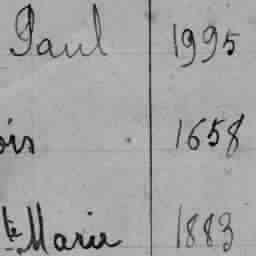 Paul 1995
ois 1658
te Marie 1883